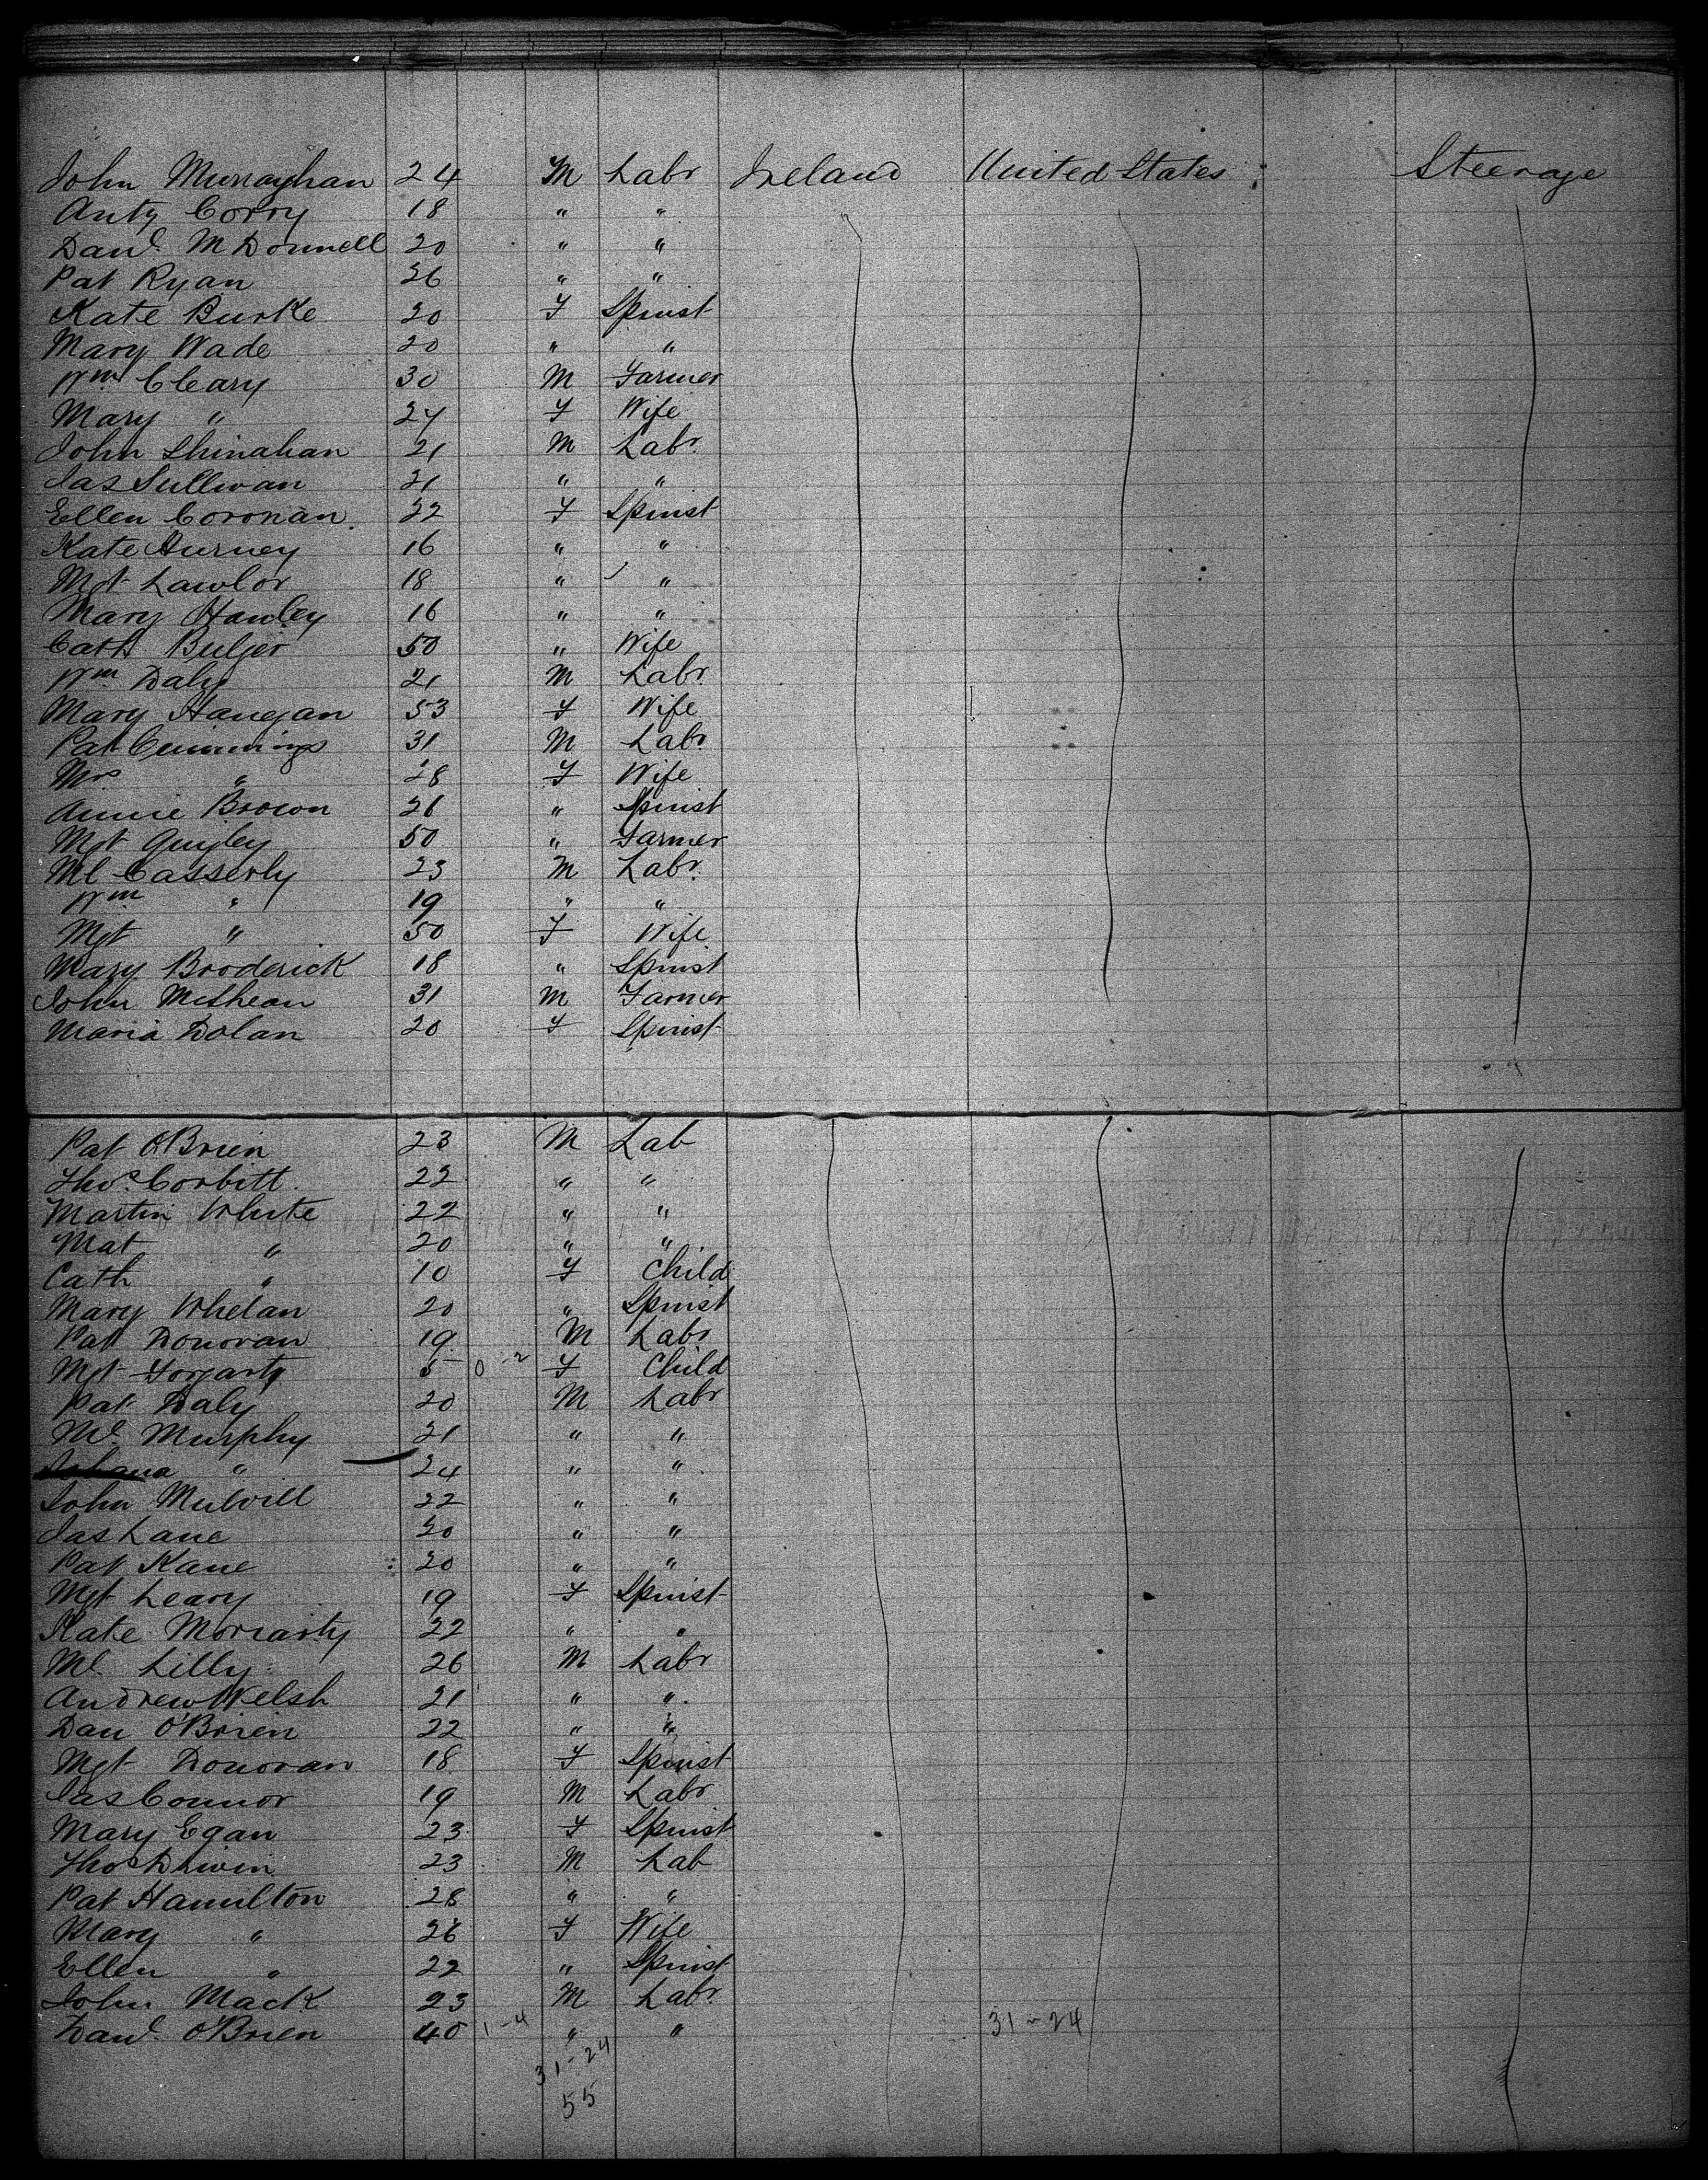 John Munayhan 24 M Labr Ireland United States Steerage
Anty Corry 18 " "
Danl. McDonnell 20 " "
Pat Ryan 26 " "
Kate Burke 20 F Spinst
Mary Wade 20 " "
Wm Cleary 30 M Farmer
Mary " 24 F Wife
John Shinahan 21 M Labr.
Jas Sullivan 21 " "
Ellen Coronan. 22 F Spinst
Kate Hurney 16 " "
Mgt Lawlor 18 " "
Mary Hanley 16 " "
Cath Bulger 50 " Wife
Wm Daly 21 M Labr.
Mary Hanegan 53 F Wife
Pat Cummings 31 M Labr.
Mrs " 28 F Wife
Annie Brown 26 " Spinst
Mgt Quigley 50 " Farmer
Ml Casserly 23 M Labr.
Wm " 19 " "
Mgt " 50 F Wife
Mary Broderick 18 " Spinst
John 31 M Farmer
Maria Dolan 20 F Spinst
Pat O'Brien 23 M Lab
Thos. Corbitt. 22 " "
Martin White 22 " "
Mat " 20 " "
Cath " 10 F Child
Mary Whelan 20 " Spinst
Pat Donovan 19 M Labr
Mgt Fogarty 5 0-2 F Child
Pat Daly 20 M Labr
Ml. Murphy 21 " "
Johana " 24 " "
John Mulvill 22 " "
Jas Lane 20 " "
Pat Kane 20 " "
Mgt Leary 19 F Spinst
Kate Moriarty 22 " "
Ml. Lilly 26 M Labr
Andrew Welsh 21 " "
Dan O'Brien 22 " "
Mgt Donovan 18 F Spinst
Jas Connor 19 M Labr
Mary Egan 23 F Spinst
Thos 23 M Lab
Pat Hamilton 28 " "
Mary " 26 F Wife
Ellen " 22 " Spinst
John Mack 23 M Labr.
Danl. O'Brien 40 1-4 " " 31-24
31-24
55